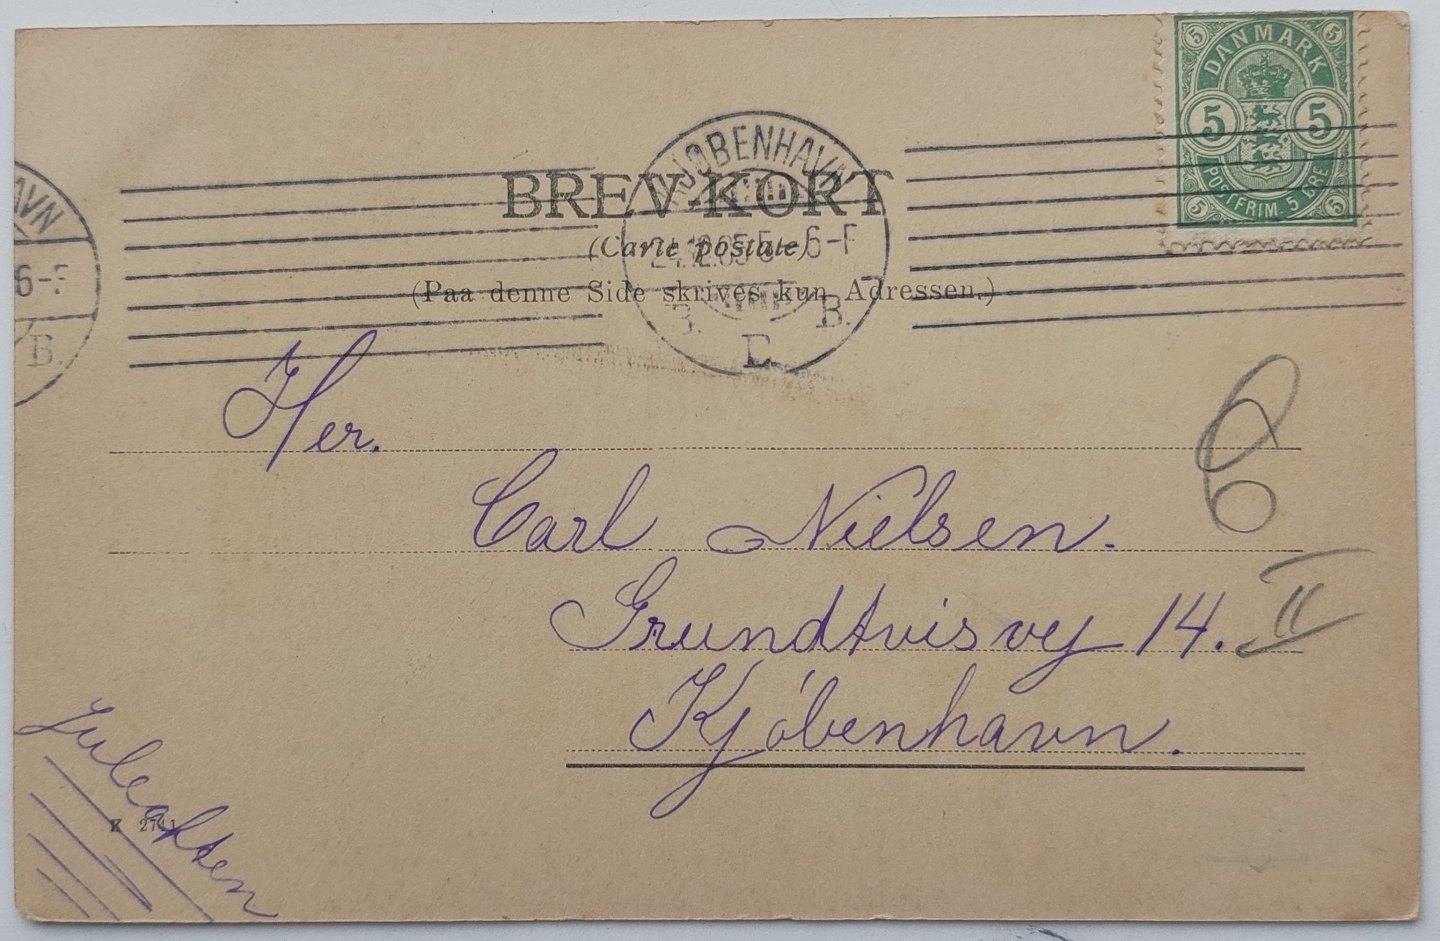 DANMARK
5 5
5 5
5 5
POSTFRIM. 5 ØRE
KJØBENHAVN
BREV-KORT
(Carte postale)
6-F
(Paa denne Side skrives kun Adressen.)
B. B.
E
AVN
6-F
B.
Her.
Carl Nielsen.
Grundtvisvej 14. II
Kjøbenhavn.
6
Juleaften
Z 2711